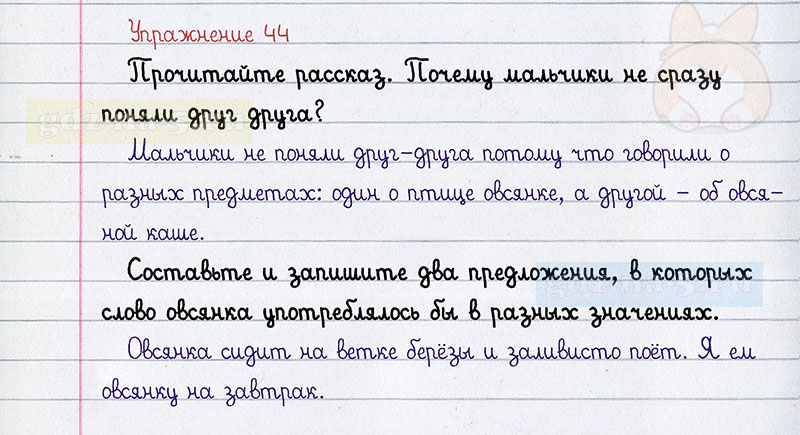 Упражнение 44
Прочитайте рассказ. Почему мальчики не сразу
поняли друг друга?
Мальчики не поняли друг-друга потому что говорили о
разных предметах: один о птице овсянке, а другой – об овся-
ной каше.
Составьте и запишите два предложения, в которых
слово овсянка употреблялось бы в разных значениях.
Овсянка сидит на ветке берёзы и заливисто поёт. Я ем
овсянку на завтрак.